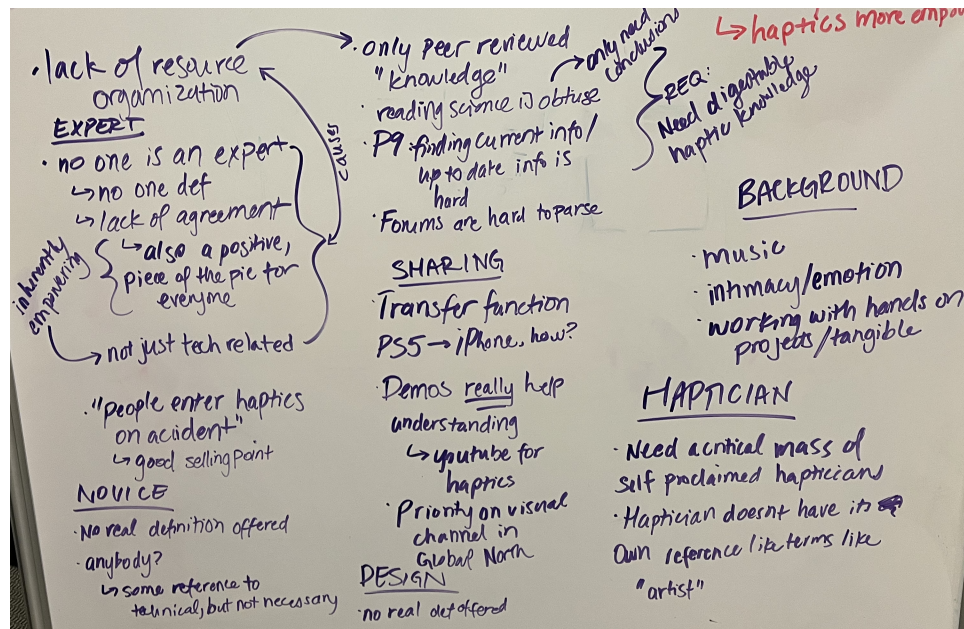 · lack of resource
organization
EXPERT
· no one is an expert
↳ no one def
↳ lack of agreement
↳ also a positive,
piece of the pie for
everyone
inherently
empowering
→ not just tech related
causes
· "people enter haptics
on accident"
↳ good selling point
NOVICE
· No real definition offered
· anybody?
↳ some reference to
technical, but not necessary
· only peer reviewed
"knowledge"
· reading science is obtuse
→ only need
conclusions
· P9: finding current info/
up to date info is
hard
· Forums are hard to parse
REQ:
Need digestable
haptic knowledge
SHARING
· Transfer function
PS5 → iPhone, how?
· Demos really help
understanding
↳ youtube for
haptics
· Priority on visual
channel in
Global North
DESIGN
· no real def offered
↳ haptics more
BACKGROUND
· music
· intimacy/emotion
· working with hands on
projects/tangible
HAPTICIAN
· Need a critical mass of
self proclaimed hapticians
· Haptician doesnt have its
own reference like terms like
"artist"